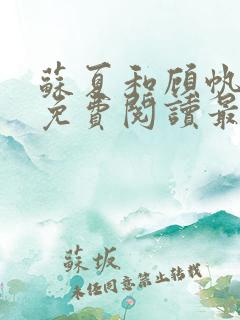 蘇夏和顧帆
免費閱讀最
蘇坂
未經同意禁止轉載